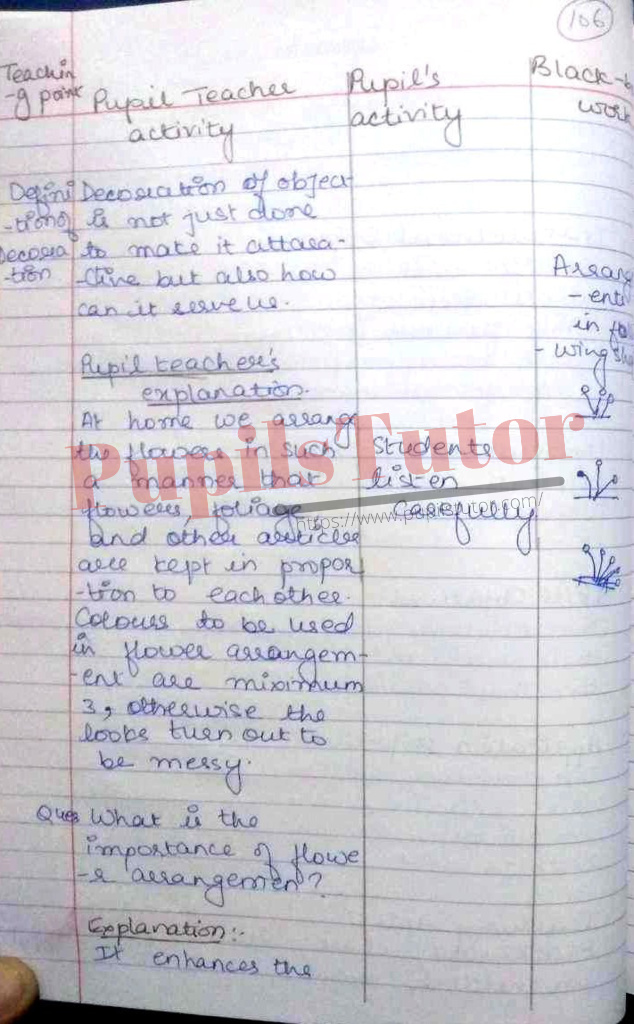 106
Teachin
-g point
Pupil Teacher
activity
Pupil's
activity
Black-b
work
Defini
-tion of
Decora
-tion
Decoration of object
is not just done
to make it attara-
-ctive but also how
can it serve us.
Arrang
-ent
in fo
-wing sha
Pupil teacher's
explanation.
At home we arrange
the flowers in such
a manner that
flowers, foliage
and other articles
are kept in propor
-tion to each other.
Colours to be used
in flower arrangem-
-ent are miximum
3, otherwise the
looks turn out to
be messy.
Students
listen
carefully
PupilsTutor
https://www.pupilstutor.com/
Ques
What is the
importance of flowe
-r arrangemen?
Explanation:-
It enhances the